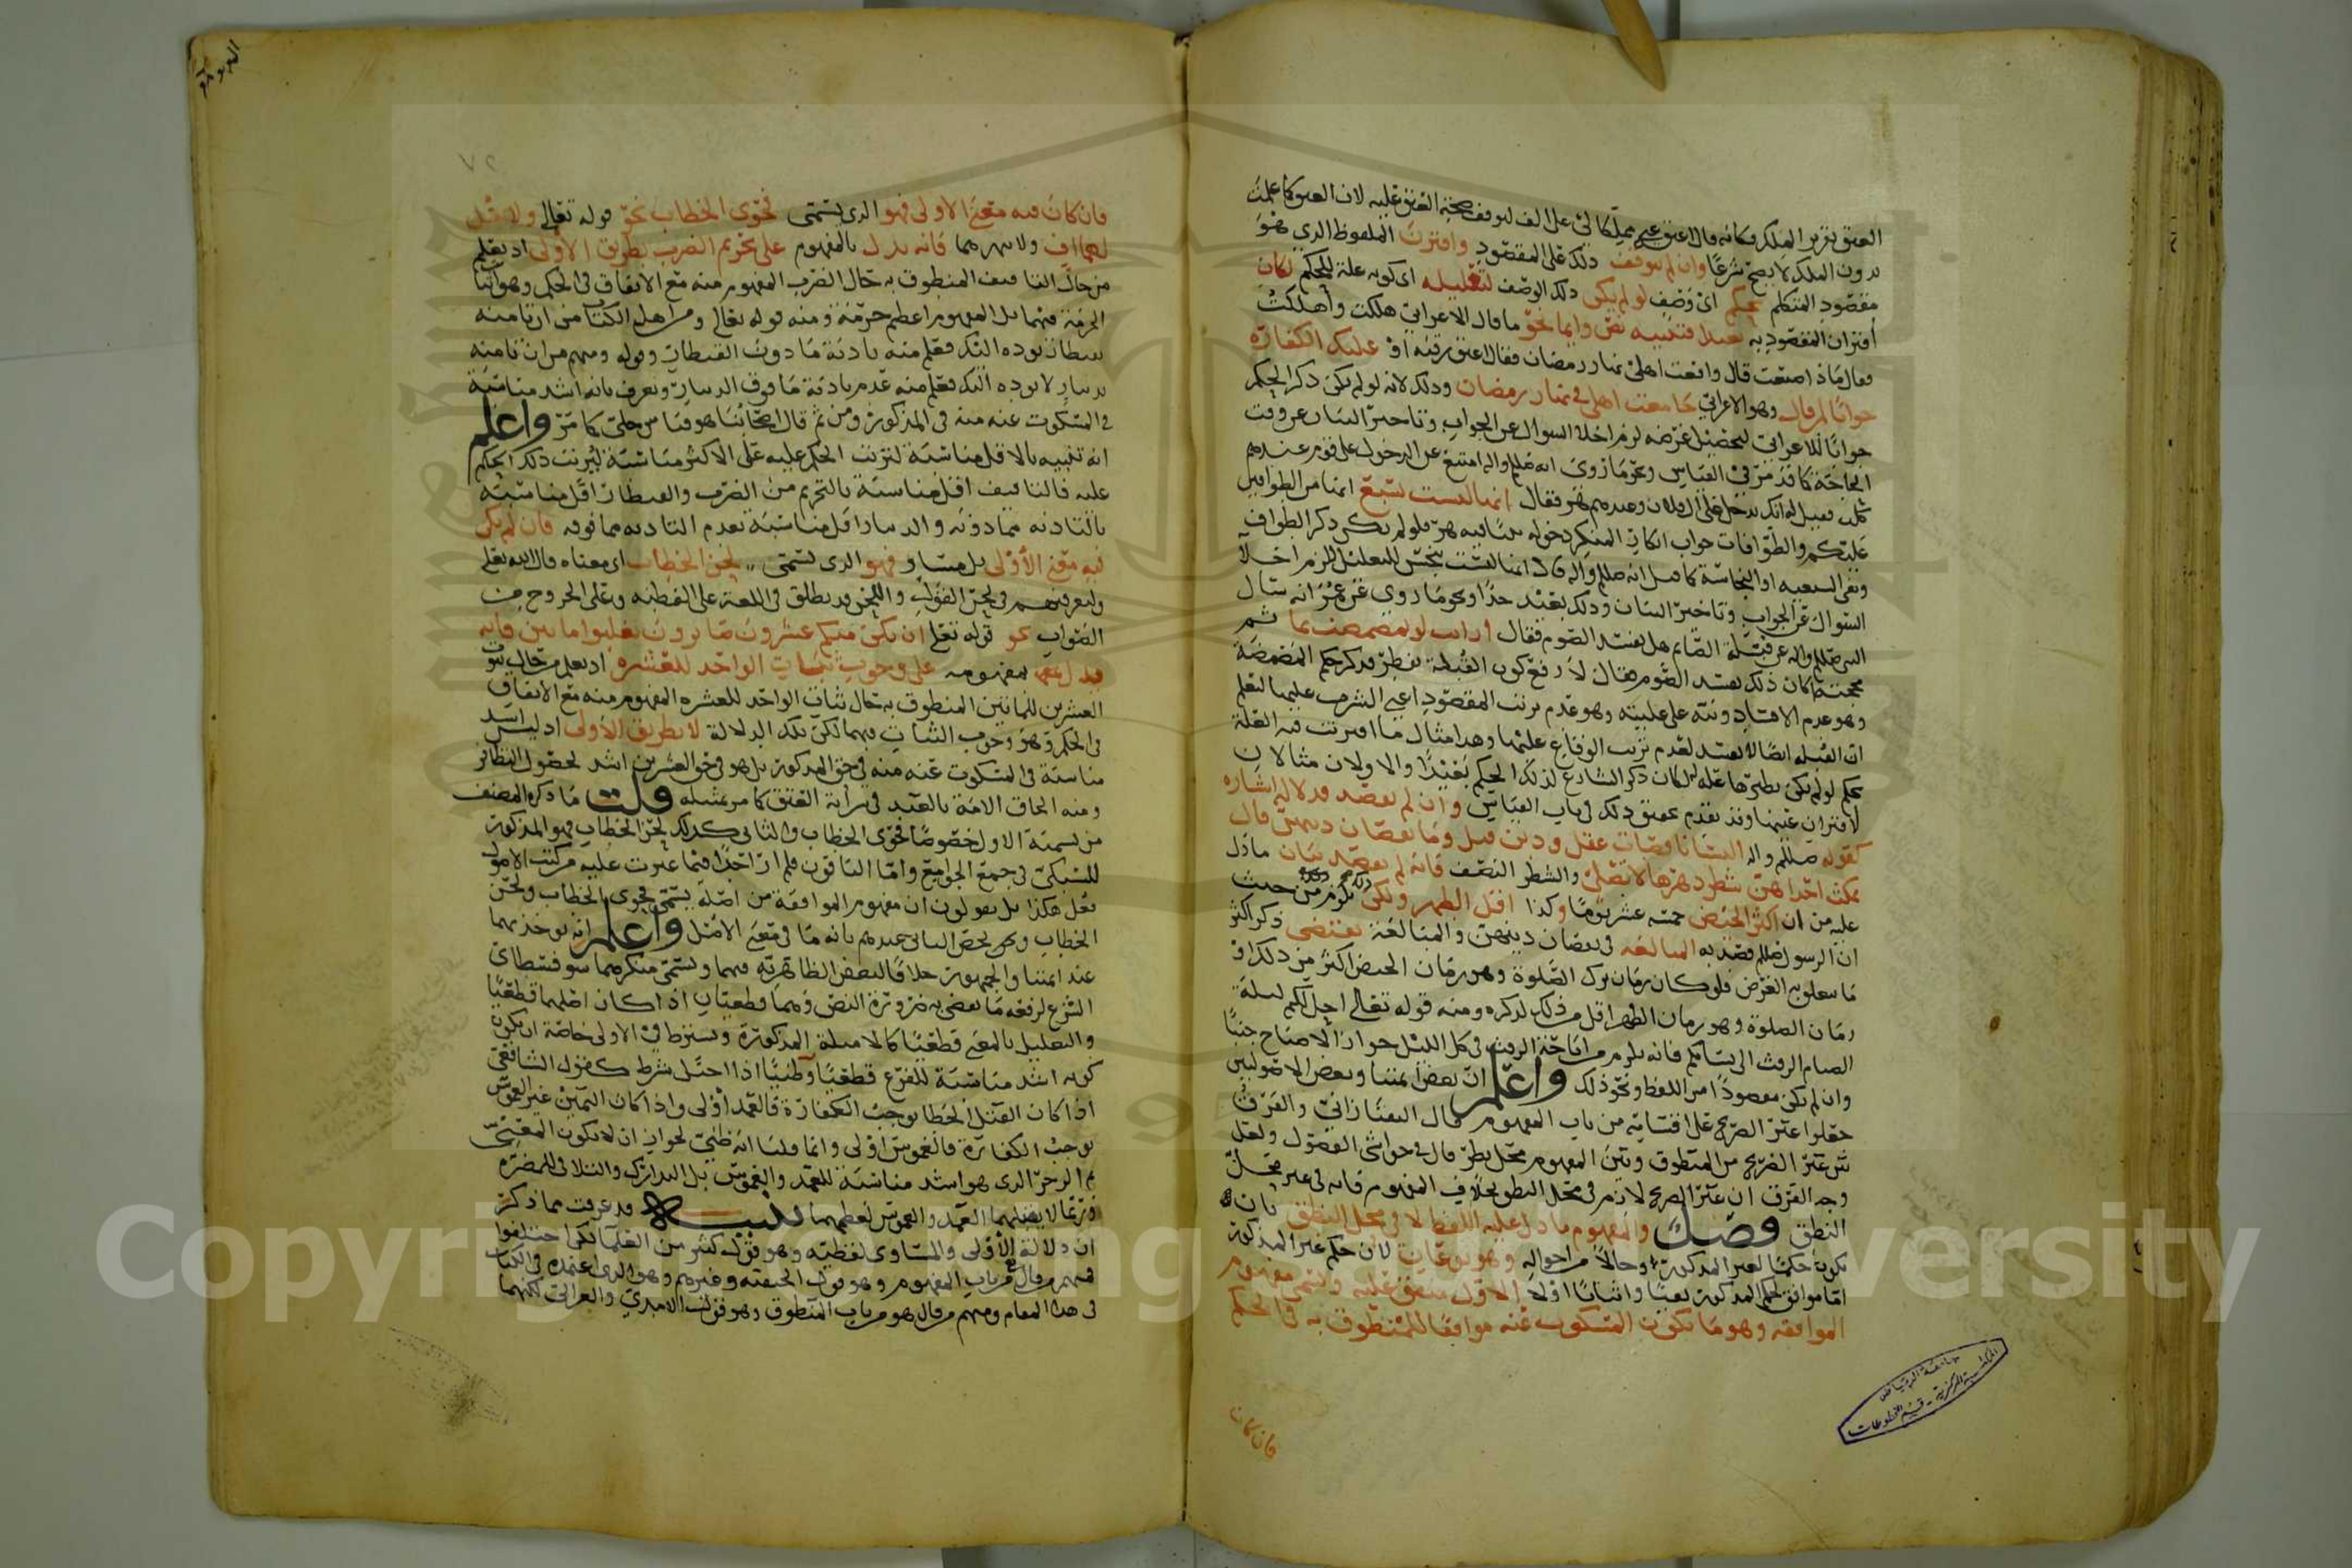 العتق بتقرير الملك فكأنه قال اعتق عبدي مملكا لي على الف لتوقف صحة العتق عليه لان العتق كما علمت
بدون الملك لا يصح شرعا وان لم يتوقف ذلك على المقصود واقترن الملفوظ الذي هو
مقصود المتكلم بحكم اي وصف لو لم يكن ذلك الوصف لتعليله اي كونه علة للحكم لكان
اقتران المقصود به بعيدا فتنبيه نص وايما نحو ما قال الاعرابي هلكت واهلكت
فقال ماذا صنعت قال واقعت اهلي في نهار رمضان فقال اعتق رقبة او عليك الكفارة
جوابا لمن قال وهو الاعرابي جامعت اهلي في نهار رمضان وذلك لانه لو لم يكن ذكر الحكم
جوابا للاعرابي لتحصيل غرضه لزم اخلاء السؤال عن الجواب وتأخير البيان عن وقت
الحاجة كما قد مر في القياس ونحو ما روي انه صللم واله امتنع عن الدخول على قوم عندهم
كلب فقيل له انك تدخل على ال فلان وعندهم هر فقال انها ليست بسبع انها من الطوافين
عليكم والطوافات جواب انكار المنكر دخوله بيتا فيه هر فلو لم يكن ذكر الطواف
السؤال عن الجواب وتأخير البيان وذلك بعيد جدا ونحو ما روي عن عمر انه سأل
النبي صللم واله عن قبلة الصائم هل تفسد الصوم فقال ارأيت لو تمضمضت بماء ثم
مججته اكان ذلك يفسد الصوم فقال لا
وهو عدم الافساد ونبه على عليته وهو عدم ترتب المقصود اعني الشرب عليها ليعلم
ان القبلة ايضا لا تفسد لعدم ترتب الوقاع عليها وهذا مثال ما اقترنت فيه العلة
لاقتران عينها وقد تقدم تحقيق ذلك في باب القياس وان لم يقصد فدلالة اشارة
كقوله صللم واله النساء ناقصات عقل ودين قيل وما نقصان دينهن قال
تمكث احداهن شطر دهرها لا تصلي والشطر النصف فانه لم يقصد بيان ما دل
عليه من ان اكثر الحيض خمسة عشر يوما وكذا اقل الطهر ولكن لزم من حيث
ان الرسول صللم قصد به المبالغة في نقصان دينهن والمبالغة تقتضي ذكر اكثر
ما يتعلق به الغرض فلو كان زمان ترك الصلوة وهو زمان الحيض اكثر من ذلك او
زمان الصلوة وهو زمان الطهر اقل من ذلك لذكره ومنه قوله تعالى احل لكم ليلة
الصيام الرفث الى نسائكم فانه يلزم من اباحة الرفث في كل الليل جواز الاصباح جنبا
وان لم يكن مقصودا من اللفظ ونحو ذلك واعلم ان بعض ائمتنا وبعض الاصوليين
جعلوا غير الصريح على اقسامه من باب المفهوم قال التفتازاني والفرق
بين غير الصريح من المنطوق وبين المفهوم محل نظر قال في حواشي الفصول ولعل
وجه الفرق ان غير الصريح لازم في محل النطق بخلاف المفهوم فانه في غير محل
النطق فصل والمفهوم ما دل عليه اللفظ لا في محل النطق بان
يكون حكما لغير المذكور وحالا من احواله وهو نوعان لان حكم غير المذكور
اما موافق لحكم المذكور نفيا واثباتا اولا الاول متفق عليه ويسمى مفهوم
الموافقة وهو ما يكون المسكوت عنه موافقا للمنطوق به في الحكم
فان كان
فان كان فيه معنى الاولى فهو الذي يسمى فحوى الخطاب نحو قوله تعالى ولا تقل
لهما اف ولا تنهرهما فانه يدل بالمفهوم على تحريم الضرب بطريق الاولى اذ يعلم
من حال التأفيف المنطوق به حال الضرب المفهوم منه مع الاتفاق في الحكم وهو اثبات
الحرمة فيهما بل المفهوم اعظم حرمة ومنه قوله تعالى ومن اهل الكتاب من ان تأمنه
بقنطار يؤده اليك فعلم منه تأدية ما دون القنطار وقوله ومنهم من ان تأمنه
بدينار لا يؤده اليك فعلم منه عدم تأدية ما فوق الدينار ويعرف بانه اشد مناسبة
في المسكوت عنه منه في المذكور ومن ثم قال اصحابنا هو قياس جلي كما مر واعلم
انه تنبيه بالاقل مناسبة لترتب الحكم عليه على الاكثر مناسبة لترتب ذلك الحكم
عليه فالتأفيف اقل مناسبة بالتحريم من الضرب والقنطار اقل مناسبة
بالتأدية مما دونه والدينار اقل مناسبة بعدم التأدية مما فوقه فان لم يكن
فيه معنى الاولى بل مساو فهو الذي يسمى لحن الخطاب اي معناه قال الله تعالى
ولتعرفنهم في لحن القول واللحن قد يطلق في اللغة على الفطنة وعلى الخروج من
الصواب نحو قوله تعالى ان يكن منكم عشرون صابرون يغلبوا مأتين فانه
يدل بمفهومه على وجوب ثبات الواحد للعشرة اذ يعلم من حال ثبوت
العشرين للمائتين المنطوق به حال ثبات الواحد للعشرة المفهوم منه مع الاتفاق
في الحكم وهو وجوب الثبات فيهما لكن تلك الدلالة لا بطريق الاولى اذ ليس اشد
مناسبة في المسكوت عنه منه في حق المذكور بل هو في حق العشرين اشد لحصول التظافر
ومنه الحاق الامة بالعبد في سراية العتق كما مر تمثيله قلت ما ذكره المصنف
من تسمية الاول خصوصا فحوى الخطاب والثاني كذلك لحن الخطاب فهو المذكور
للسبكي في جمع الجوامع واما الباقون فلم ار احدا فيما عبرت عليه من كتب الاصول
فعل هكذا بل يقولون ان مفهوم الموافقة من اصله يسمى فحوى الخطاب ولحن
الخطاب واعلم انه يؤخذ بهما
عند ائمتنا والجمهور خلافا لبعض الظاهرية فيهما ويسمى منكرهما سوفسطائي
الشرع لرفعه ما يقضي به ضرورة النص وهما قطعيان اذا كان اصلهما قطعيا
والتعليل بالمعنى قطعيا كالامثلة المذكورة ويشترط في الاولى خاصة ان يكون
كونه اشد مناسبة للفرع قطعيا وظنيا اذا اختل شرط كقول الشافعي
اذا كان القتل الخطا يوجب الكفارة فالعمد اولى واذا كان اليمين غير الغموس
يوجب الكفارة فالغموس اولى وانما قلنا انه ظني لجواز ان لا يكون المعنى
ثم الزجر الذي هو اشد مناسبة للعمد والغموس بل التدارك والتلافي للمضرة
وربما لا يقبلهما العمد والغموس لعظمهما تنبيه قد عرفت مما ذكر
ان دلالة الاولى والمساوي لفظية وهو قول كثير من العلماء لكن اختلفوا
فمنهم من قال من باب المفهوم وهو قول الحنفية وغيرهم وهو الذي اعتمده في الكتاب
في هذا المقام ومنهم من قال هو من باب المنطوق وهو قول الامدي والغزالي لكنهما
٧٢
جامعة الرياض
المكتبة المركزية - قسم المخطوطات
Copyright © King Saud University